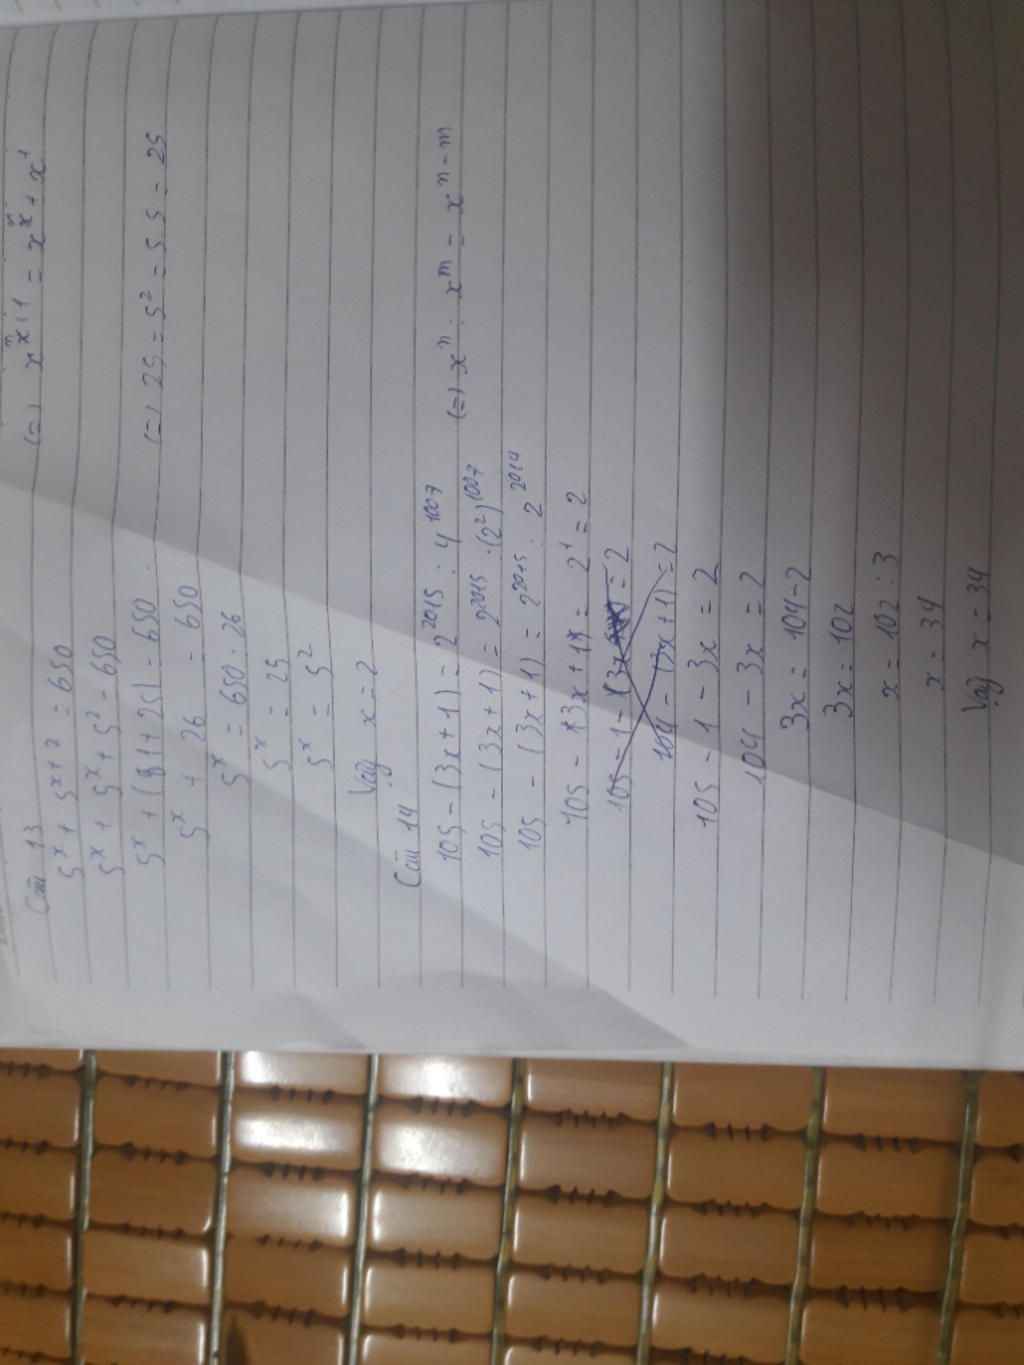 Câu 13 (=) x^n x+1 = x^n x + x^1
5^x + 5^x+2 = 650
5^x + 5^x + 5^2 = 650
5^x + (1 + 25) = 650 (=) 25 = 5^2 = 5.5 = 25
5^x + 26 = 650
5^x = 650 . 26
5^x = 25
5^x = 5^2
Vậy x = 2
Câu 14
105 - (3x + 1) = 2^2015 : 4^1007 (=) x^n : x^m = x^n-m
105 - (3x + 1) = 2^2015 : (2^2)^1007
105 - (3x + 1) = 2^2015 : 2^2014
105 - 3x + 1 = 2^1 = 2
105 - 1 - (3x = 2
104 - (3x + 1) = 2
105 - 1 - 3x = 2
104 - 3x = 2
3x = 104 - 2
3x = 102
x = 102 : 3
x = 34
Vậy x = 34